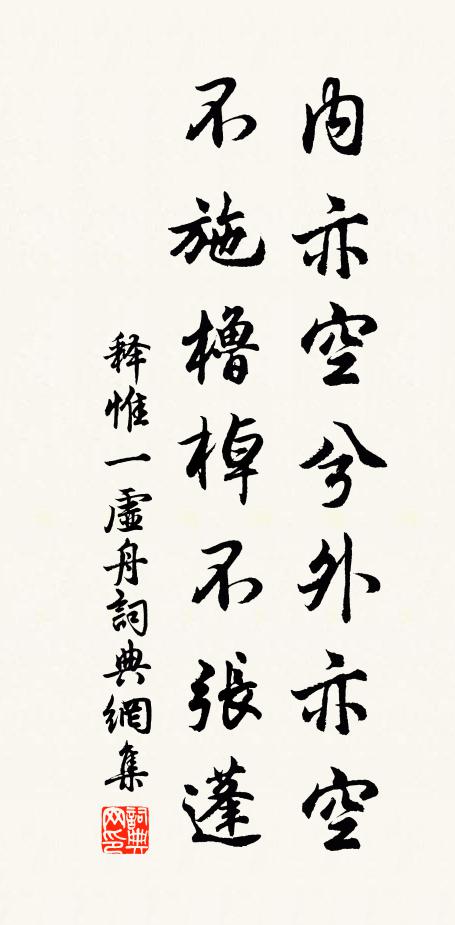 内亦空兮外亦空
不施櫓棹不張蓬
释惟一虛舟詞典網集
詞典网印